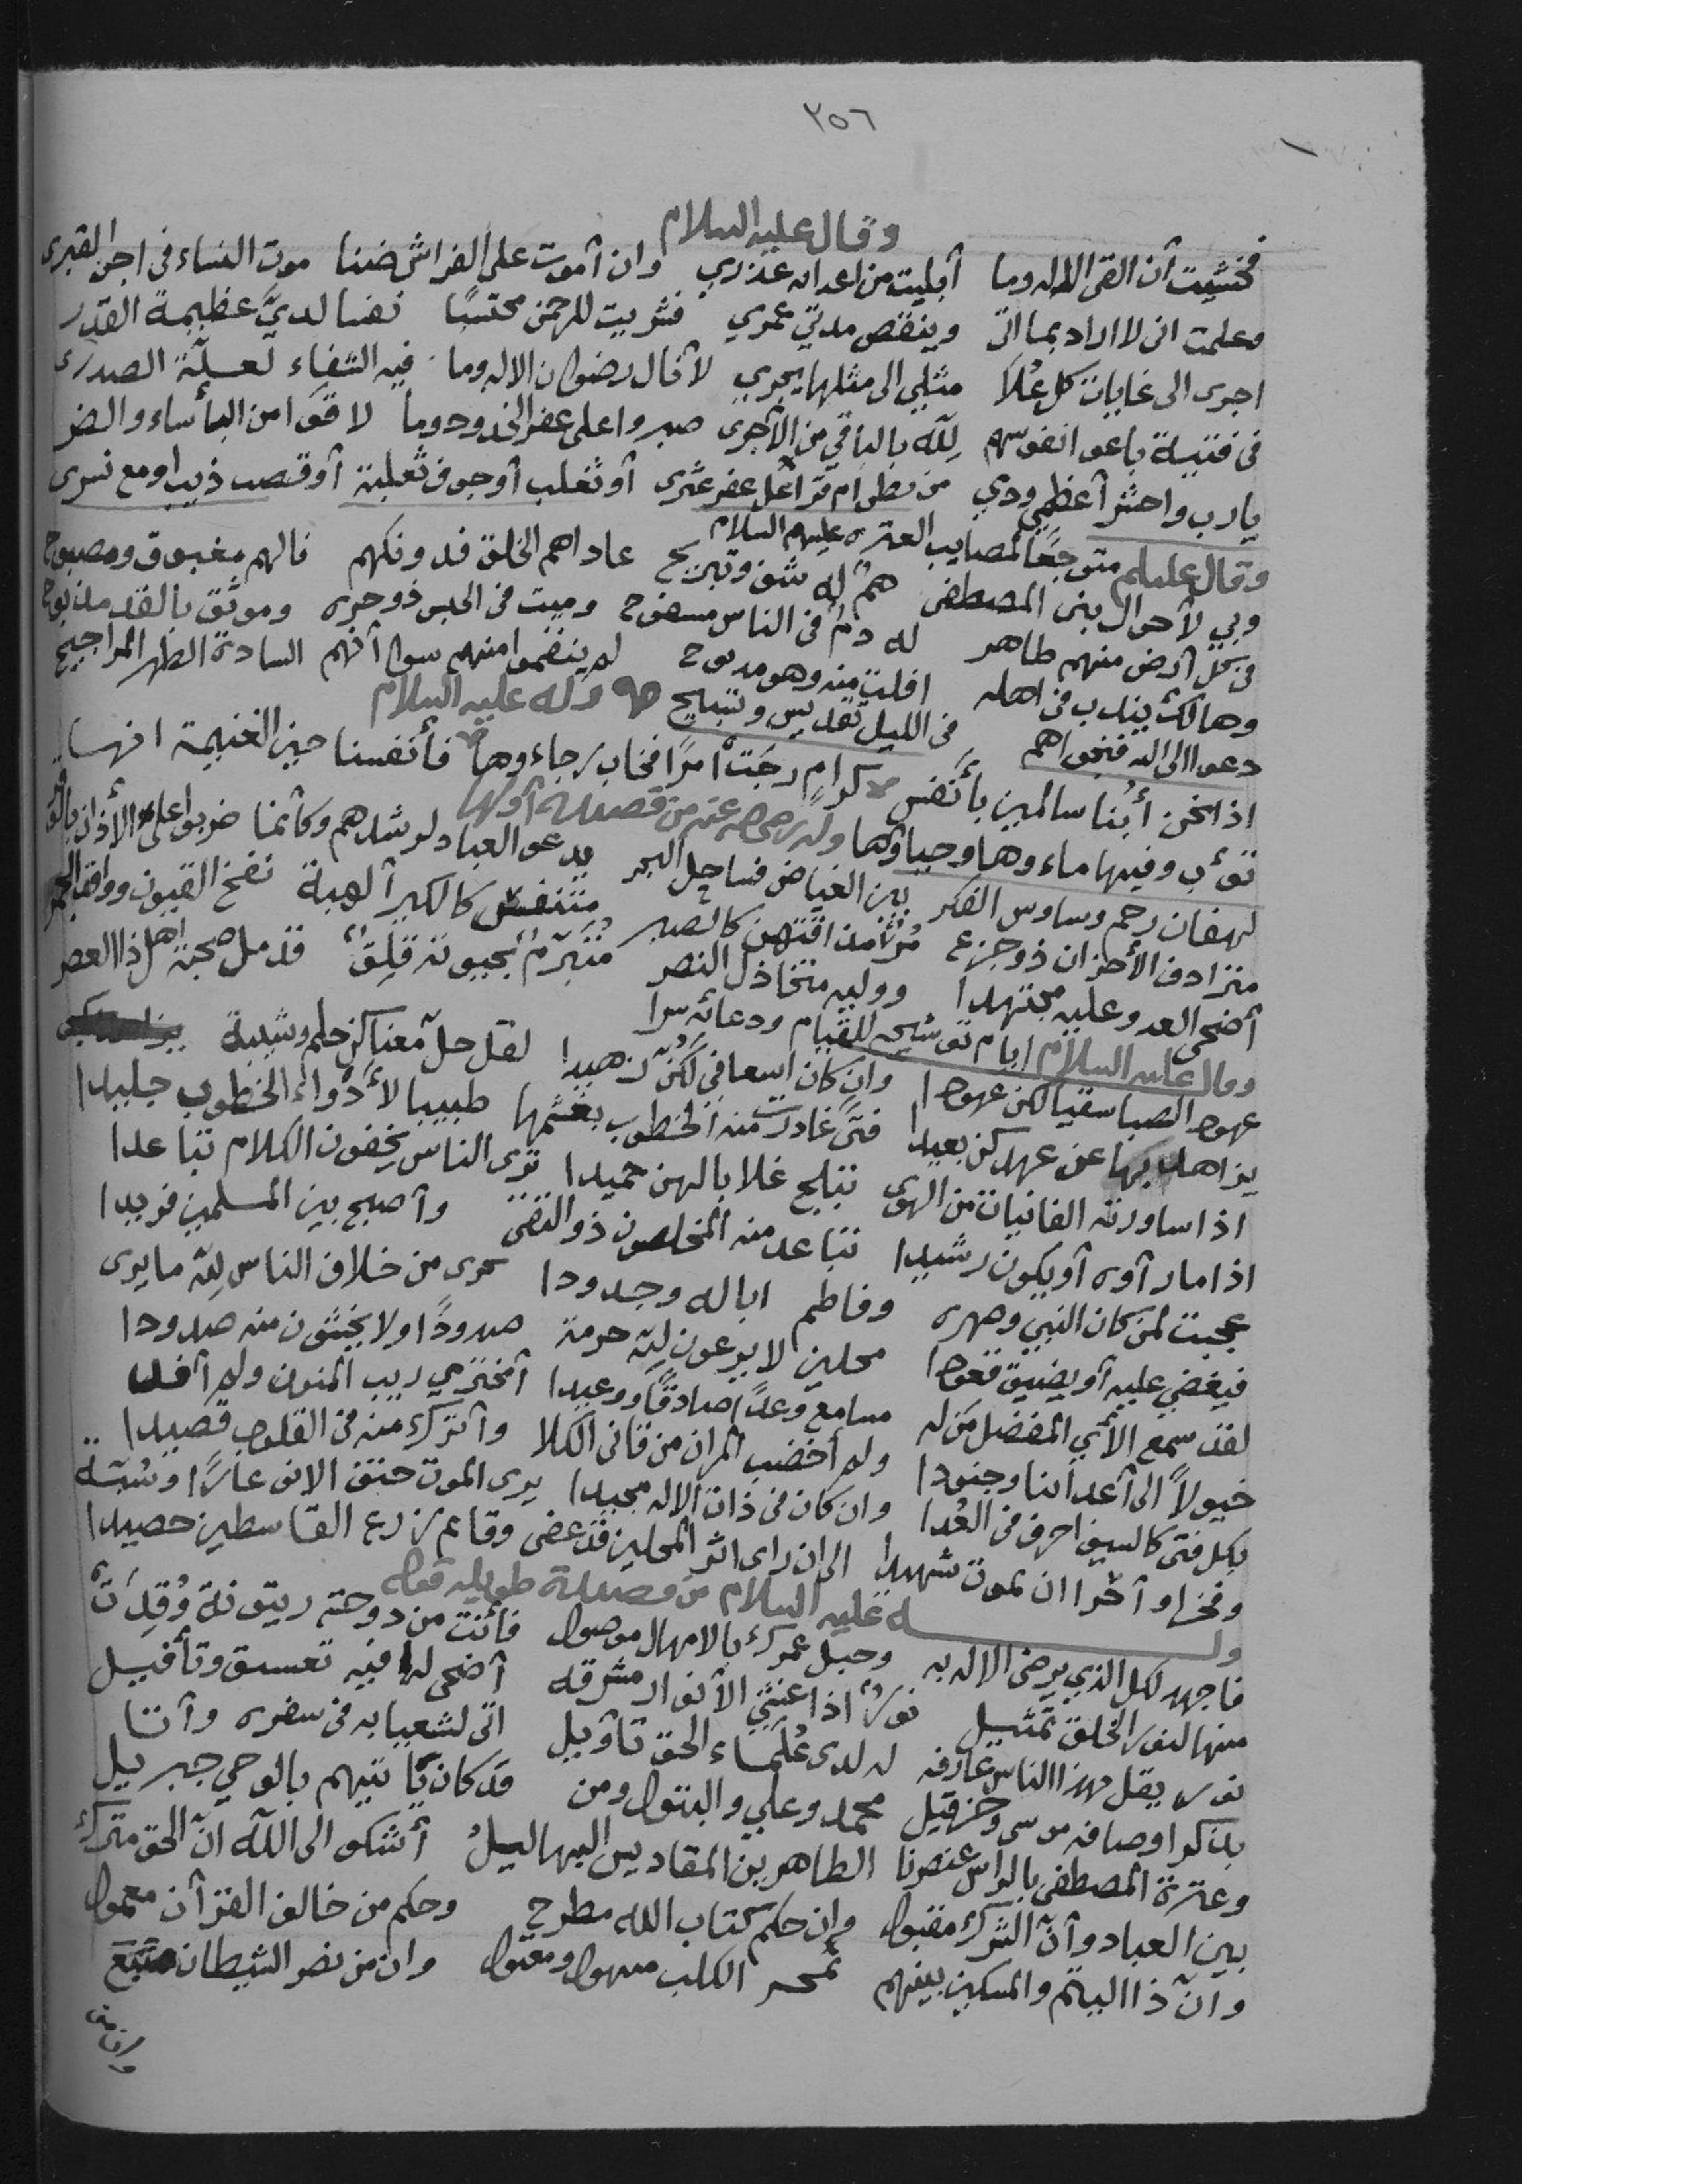 ٣٥٦
وقال عليه السلام
فخشيت أن القى الاله وما أبليت من اعدائه عذري وان أموت على الفراش ضنا موت النساء في اجن القبرى
وعلمت انى لا ازاد بما اتى وينقص مدتي عمري فشريت للرحمن محتسبًا نفسا لديَّ عظيمة القدر
اجرى الى غايات كل عُلاَ مثلي الى مثلها يجري لأنال رضوان الاله وما فيه الشفاء لعلّة الصدرى
فى فتية باعوا نفوسهم لِلّه بالباقي من الأجرى صبروا على عفر الخدود وما لاقوا من البأساء والضر
يارب واحشر أعظمي ودمي من بطن ام قرا على عفر عثرى أو ثعلب أو جوف ثعلبة أو قصب ذيب او مع نسرى
وقال عليلم متوجعًا لمصايب العتره عليهم السلام
وبي لأحوال بنى المصطفى همٌ له شف وتبريح عاداهم الخلق فدونكهم فالهم مغبوق ومصبوح
فى كل أرض منهم طاهر له دمٌ فى الناس مسفوح وميت فى الحبس ذو حره وموثق بالقد مذبوح
وهالك يندب فى اهله افلت منه وهو مدبوح لم ينقموا منهم سوا أنهم السادة الطهر المراجيح
دعوا الى الله فنجواهم فى الليل تقديس وتسبيح وله عليه السلام
اذا نحن أبنا سالمين بأنفس كرامٍ رجت أمرًا فخاب رجاءوها فأنفسنا حين الغنيمة انها
تؤب وفيها ماءوها وحياؤها وله رضى الله عنه من قصيدة أولها
لهفان رحم وساوس الفكر بين الغياض فساحل البحر يدعو العباد لرشدهم وكأنما ضربوا على الأذان بالوقر
مترادف الأحزان ذو جزع مُرّ مذاقتهن كالصبر متنفس كالكير ألهبة نفخ القيون وواقد الجمر
أضحى العدو عليه مجتهدا ووليه متخاذل النصر متبرمٌ بحيوته قلِقٌ قد مل صحبة اهل ذا العصر
وقال عليه السلام ايام توشيحه للقيام ودعائه سرا
عهود الصبا سقيا لكن عهودا وان كان اسعافي لكُنّ زهيدا لقد حل معناكن حلم وشيبة
يزاهد بها عن عهدكن بعيدا فتًى غادرت منه الخطوب بغشمها طبيبا لأدواء الخطوب جليدا
اذا ساورته الفانيات من الهوى تبلج غلابا لهن حميدا ترى الناس يخفون الكلام تباعدا
اذا ما رآوه أو يكون رشيدا تباعد منه المخلصون ذو التقى وأصبح بين المسلمين فريدا
عجبت لمن كان النبي وصهره وفاطم ابا له وجدودا يرى من خلاف الناس لِلّه ما يرى
فيغضي عليه أو يضيق قعودا محلين لا يرعون لِلّه حرمة صدودًا ولا يخشون منه صدودا
لقد سمع الأي المفضل من له مسامع وعدًا صادقًا ووعيدا أتخترمي ريب المنون ولم أقد
خيولاً الى أعدائنا وجنودا ولم أخضب المران من قانى الكلا وأترك منه فى القلوب قصيدا
بكل فتى كالسيف احرق فى العُدا وان كان فى ذات الاله مجيدا يرى الموت حتف الانف عارًا وسُبّة
وفخرا وأجرا ان يموت شهيدا الى ان راى اثر المحلين قد عفى وقايم زرع القاسطين حصيدا
وله عليه السلام من قصيدة طويله قوله
فاجهد لكل الذي يرضى الاله به وحبل عمرك بالامهال موصول فأنت من دوحة زيتونة وُقدت
منها لنور الخلق تمثيل نورٌ اذا غشي الأنوار مشرقه أضحى له فيه تعسق وتأفيل
نور يقل مهذا الناس عارفه له لدى عُلماء الحق تاويل اتى لشعيا به فى سفره وأتنا
بذكر اوصافه موسى وحزقيل محمد وعلي والبتول ومن قد كان يأتيهم بالوحي جبريل
وعترة المصطفى بالراس عنصرنا الطاهرين المقاديس البهاليلُ أشكو الى اللّه انّ الحق مترك
بين العباد وأنّ الشرك مقبول وان حكم كتاب الله مطرح وحكم من خالف القرآن معمول
وانّ ذا اليتم والمسكين بينهم الكلب منهول ومعتول وان من نصر الشيطان متبع